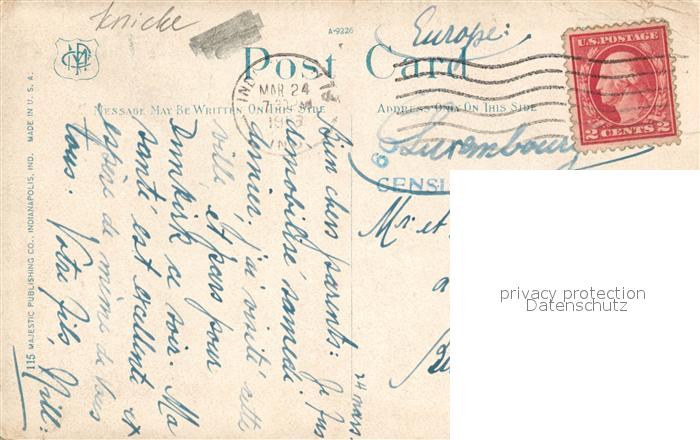 Knicke
A-9226
Europe:
Post Card
MAR 24
MESSAGE MAY BE WRITTEN ON THIS SIDE
ADDRESS ONLY ON THIS SIDE
U.S. POSTAGE
2 CENTS 2
Luxembourg
CENS
Mr et
24 mars.
Bien chers parents: Je fus
démobilisé samedi
dernier, j'ai visité cette
ville et pars pour
Dunkirk ce soir. Ma
santé est excellente et
espère de même de vous
tous. Votre fils, Will:
115 MAJESTIC PUBLISHING CO., INDIANAPOLIS, IND. MADE IN U. S. A.
privacy protection
Datenschutz